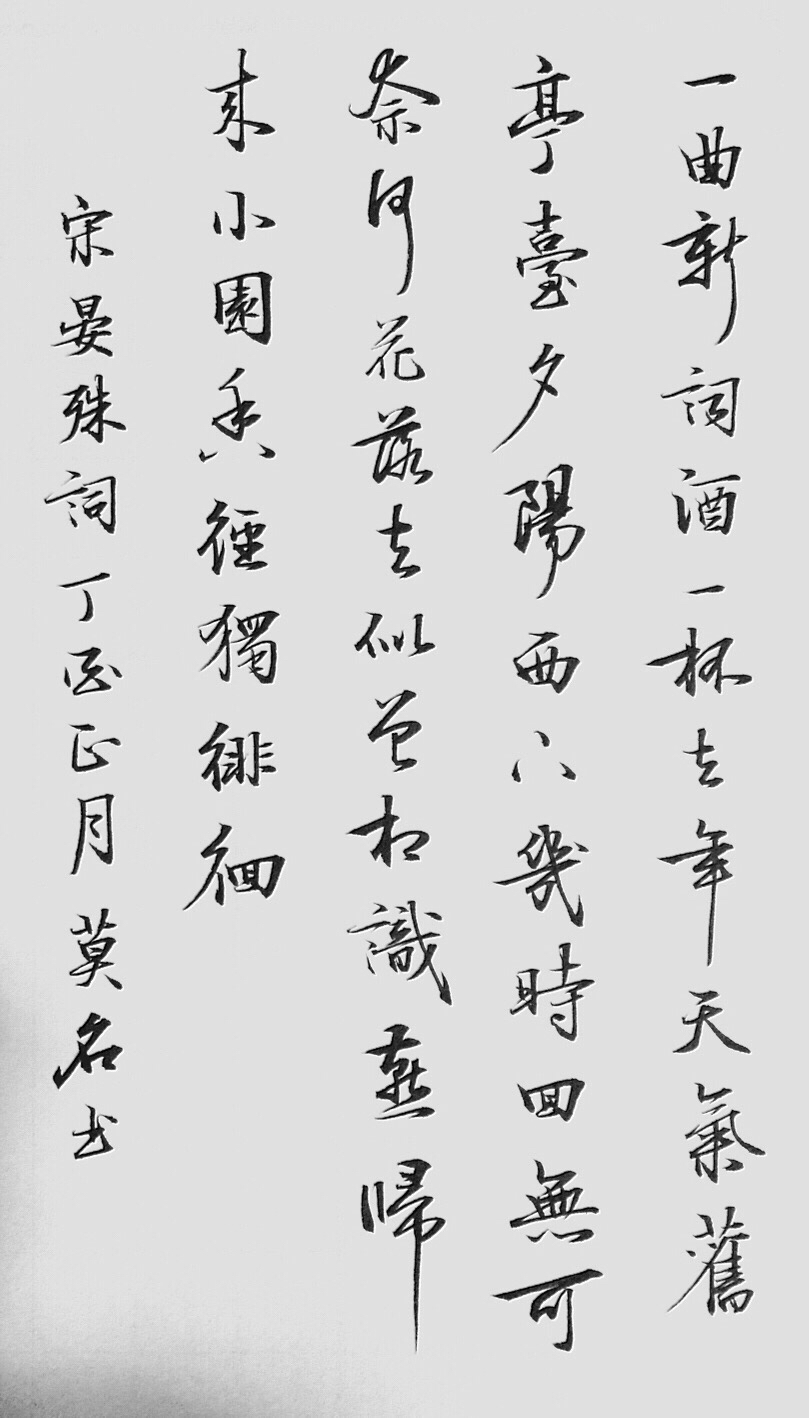 一曲新詞酒一杯去年天氣舊
亭臺夕陽西下幾時回無可
奈何花落去似曾相識燕歸
來小園香徑獨徘徊
宋晏殊詞丁酉正月莫名书